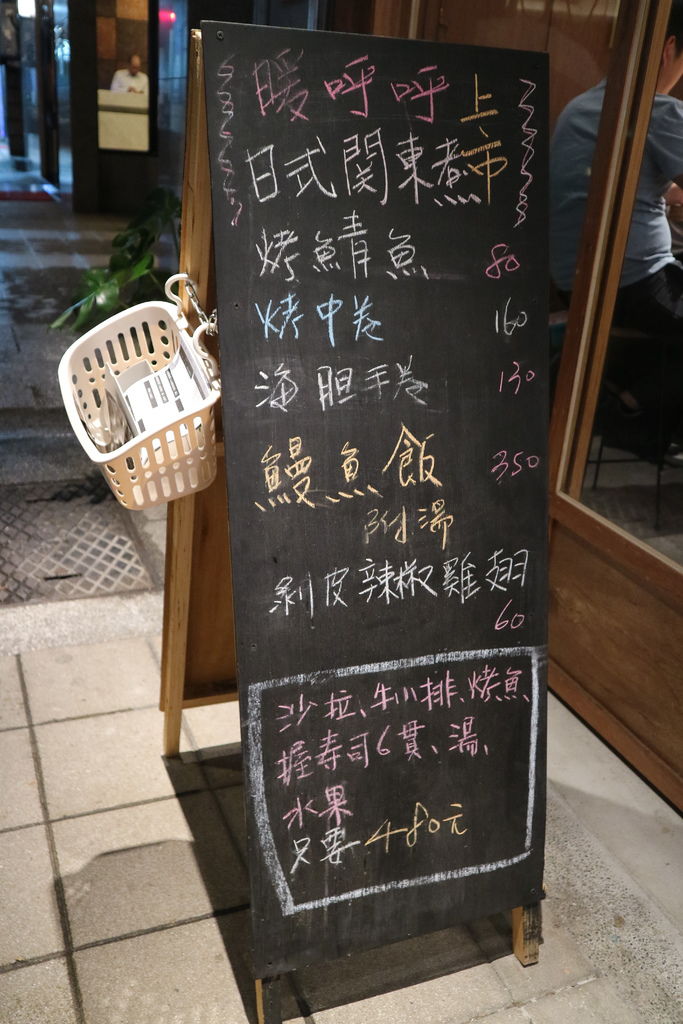 暖呼呼上市
日式關東煮
烤鯖魚 80
烤中卷 160
海胆手卷 130
鰻魚飯 350
附湯
剝皮辣椒雞翅
60
沙拉、牛小排、烤魚
握寿司6貫、湯、
水果
只要480元